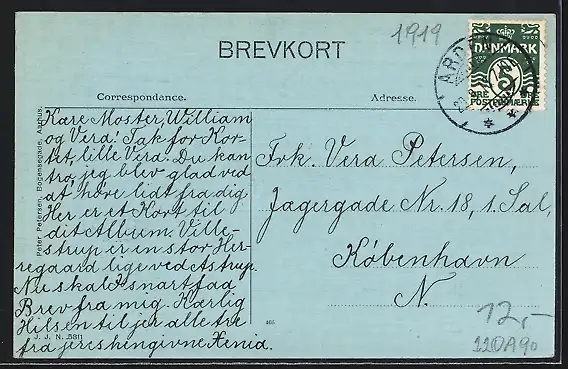 1919
BREVKORT
DANMARK
5
ØRE ØRE
POSTFRIMÆRKE
Correspondance. Adresse.
Kære Moster, William
og Vera! Tak for Kor-
tet, lille Vera. Du kan
tro, jeg blev glad ved
at høre lidt fra dig.
Her er et Kort til
dit Album. Ville-
strup er en stor Her-
regaard lige ved Astrup.
Nu skal I snart faa
Brev fra mig. Kærlig
Hilsen til jer alle tre
fra jeres hengivne Xenia.
Frk. Vera Petersen,
Jagergade Nr. 18, 1. Sal,
København
N.
Peter Petersen, Bogensegade, Aarhus.
J. J. N. 5811
12,-